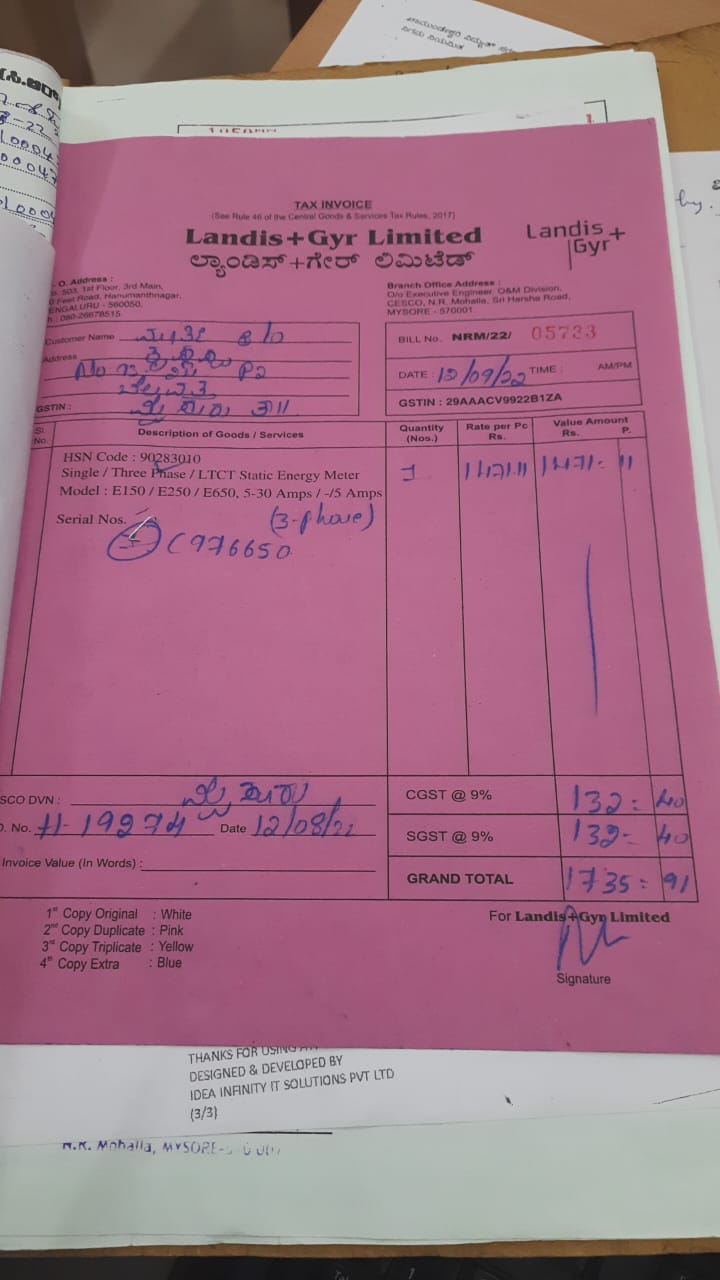 TAX INVOICE
(See Rule 46 of the Central Goods & Services Tax Rules, 2017)
Landis+Gyr Limited
ಲ್ಯಾಂಡಿಸ್+ಗೇರ್ ಲಿಮಿಟೆಡ್
Landis+
Gyr
O. Address :
503, 1st Floor, 3rd Main,
Feet Road, Hanumanthnagar,
ENGALURU - 560050,
080-26678515
Branch Office Address :
O/o Executive Engineer, O&M Division,
CESCO, N.R. Mohalla, Sri Harsha Road,
MYSORE - 570001.
Customer Name
Address
P2
GSTIN :
BILL No. NRM/22/ 05733
DATE : /09/22 TIME : AM/PM
GSTIN : 29AAACV9922B1ZA
Sl. No. Description of Goods / Services Quantity (Nos.) Rate per Pc Rs. Value Amount Rs. P.
HSN Code : 90283010
Single / Three Phase / LTCT Static Energy Meter
Model : E150 / E250 / E650, 5-30 Amps / -/5 Amps
1 1471.11 1471- 11
Serial Nos. (3-phase)
C976650
SCO DVN :
No. H-19274 Date 12/08/22
Invoice Value (In Words) :
CGST @ 9% 132= 40
SGST @ 9% 132= 40
GRAND TOTAL 1735= 91
1st Copy Original : White
2nd Copy Duplicate : Pink
3rd Copy Triplicate : Yellow
4th Copy Extra : Blue
For Landis+Gyr Limited
Signature
THANKS FOR USING
DESIGNED & DEVELOPED BY
IDEA INFINITY IT SOLUTIONS PVT LTD
(3/3)
N.R. Mohalla, MYSORE-